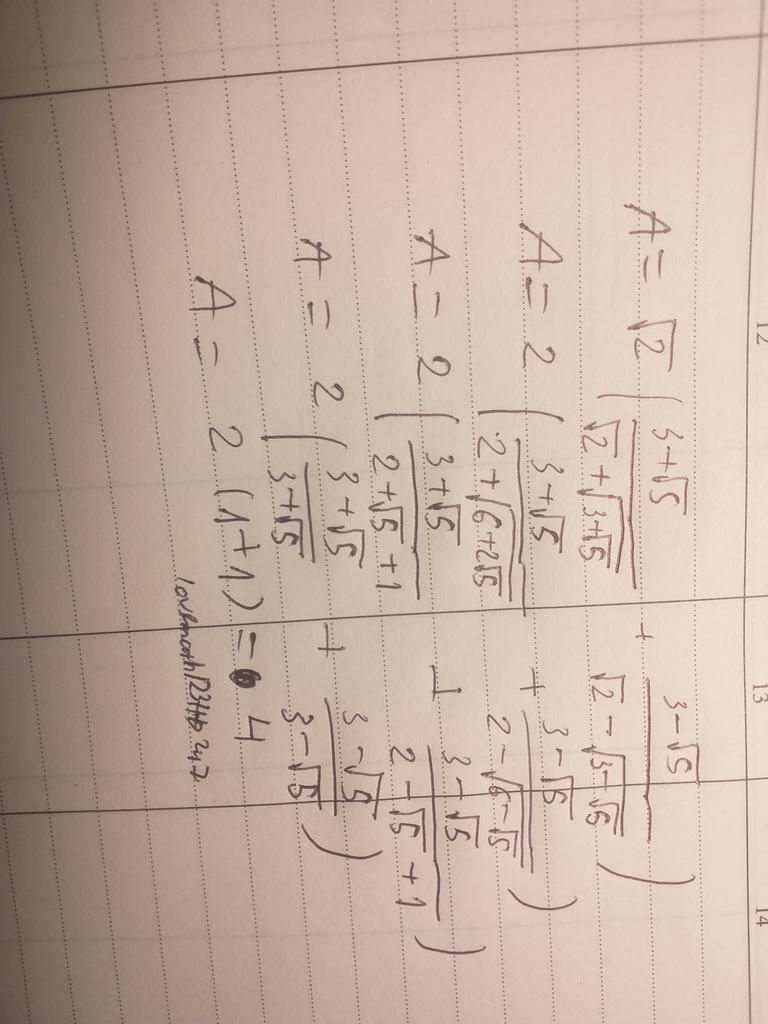 12 13 14
A = √2 ( (3+√5)/(√2+√(3+√5)) + (3-√5)/(√2-√(3-√5)) )
A = 2 ( (3+√5)/(2+√(6+2√5)) + (3-√5)/(2-√(6-√5)) )
A = 2 ( (3+√5)/(2+√5+1) + (3-√5)/(2-√5+1) )
A = 2 ( (3+√5)/(3+√5) + (3-√5)/(3-√5) )
A = 2 (1+1) = 4